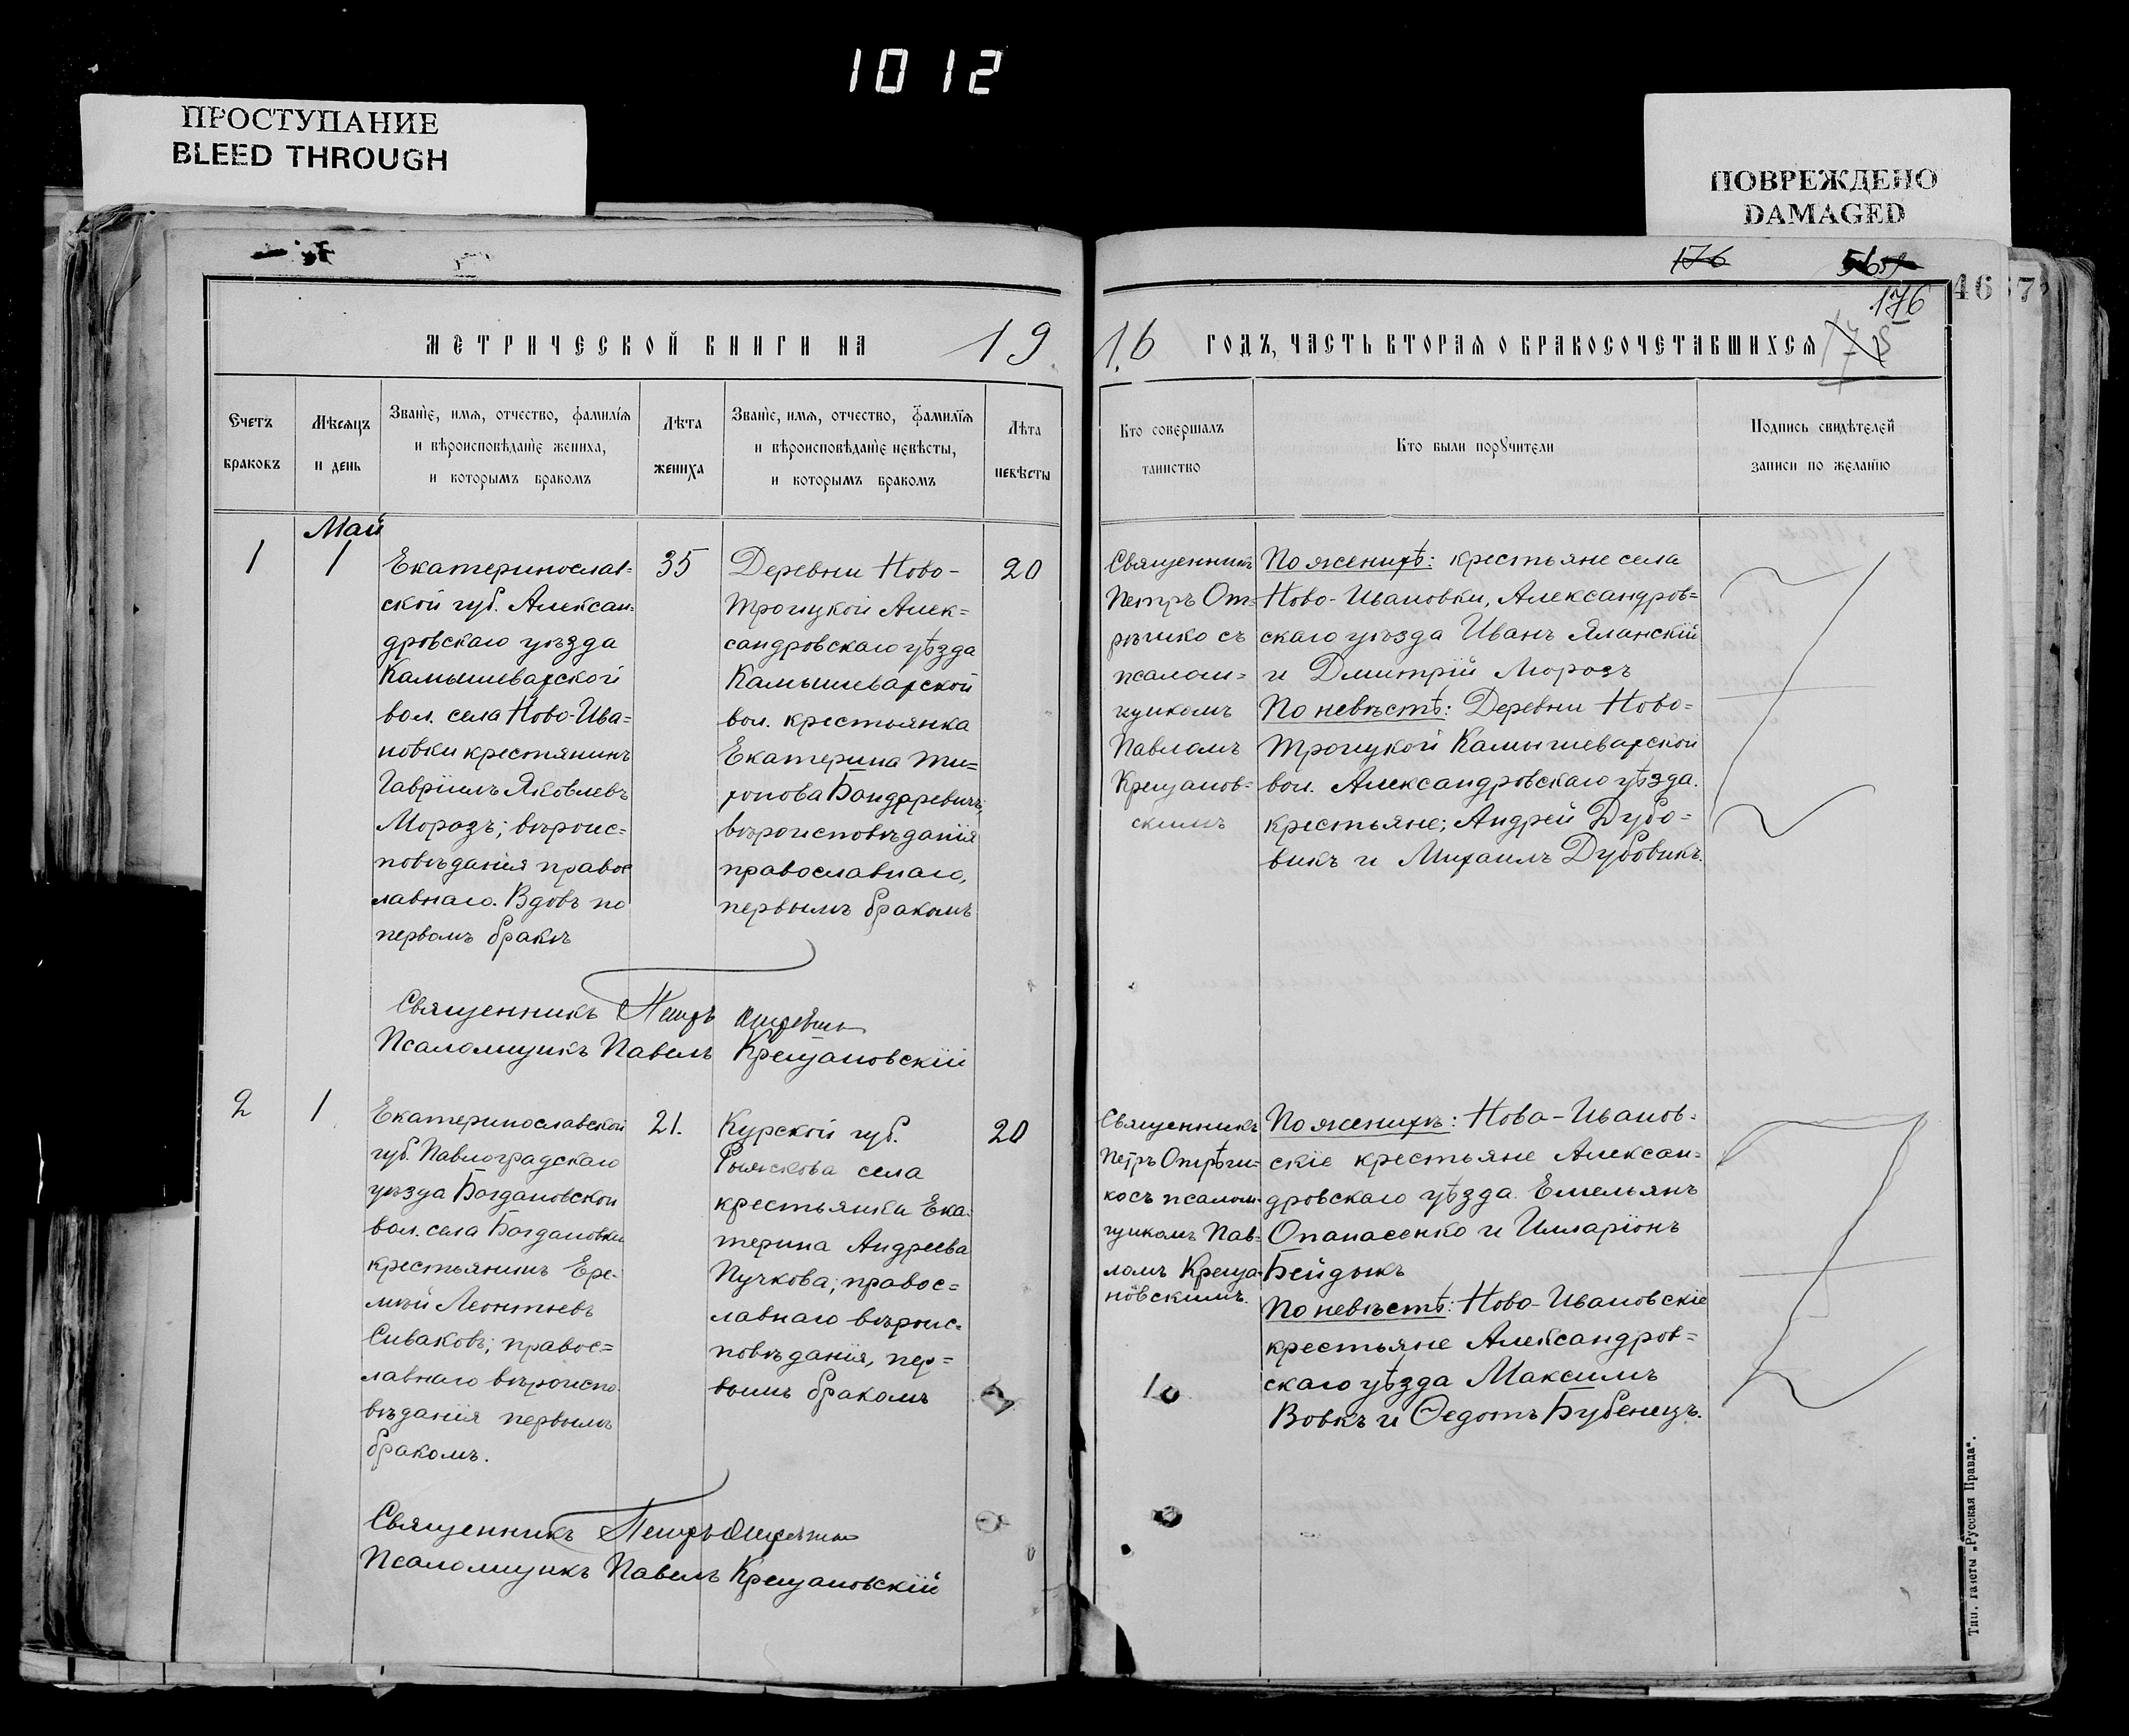 1012
ПРОСТУПАНИЕ
BLEED THROUGH
ПОВРЕЖДЕНО
DAMAGED
176
176
467
МЕТРИЧЕСКОЙ КНИГИ НА 19
16 ГОДЪ, ЧАСТЬ ВТОРАЯ О БРАКОСОЧЕТАВШИХСЯ
Счетъ
браковъ
Мѣсяцъ
и день
Званіе, имя, отчество, фамилія
и вѣроисповѣданіе жениха,
и которымъ бракомъ
Лѣта
жениха
Званіе, имя, отчество, фамилія
и вѣроисповѣданіе невѣсты,
и которымъ бракомъ
Лѣта
невѣсты
Кто совершалъ
таинство
Кто были порꙋчители
Подпись свидѣтелей
записи по желанію
1
Май
1
Екатеринослав=
ской губ. Алексан=
дровскаго уѣзда
Камышеватской
вол. села Ново-Ива=
новки крестянинъ
Гавріилъ Яковлевъ
Морозъ; вѣроис=
повѣданія правос
лавнаго. Вдовъ по
первомъ бракѣ
35
Деревни Ново-
Троицкой Алек=
сандровскаго уѣзда
Камышеватской
вол. крестьянка
Екатерина
вѣроисповѣданія
православнаго,
первымъ бракомъ
20
Священникъ
Петръ От=
рѣшко съ
псалом=
щикомъ
Павломъ
Крещанов=
скимъ
По женихѣ: крестьяне села
Ново-Ивановки, Александров=
скаго уѣзда Иванъ Яланскій
и Дмитрій Морозъ
По невѣстѣ: Деревни Ново=
Троицкой Камышеватской
вол. Александровскаго уѣзда.
крестьяне; Андрей Дубо=
викъ и Михаилъ Дубовикъ.
Священникъ Петръ
Псаломщикъ Павелъ Крещановскій
2
1
Екатеринославской
губ. Павлоградскаго
уѣзда Богдановской
вол. села Богдановки
крестьянинъ Ере=
мѣй Леонтьевъ
Сиваковъ; правос=
лавнаго вѣроиспо
вѣданія первымъ
бракомъ.
21.
Курской губ.
села
крестьянка Ека=
терина Андреева
Пучкова; правос=
лавнаго вѣроис=
повѣданія, пер=
вымъ бракомъ
20
Священникъ
Петръ Отрѣш=
ко съ псалом=
щикомъ Пав=
ломъ Креща=
новскимъ.
По женихѣ: Ново-Иванов=
скіе крестьяне Алексан=
дровскаго уѣзда Емельянъ
Опанасенко и Илларіонъ
Бейдыкъ
По невѣстѣ: Ново-Ивановскіе
крестьяне Александров=
скаго уѣзда Максимъ
Вовкъ и Ѳедотъ Бубенецъ.
Священникъ Петръ
Псаломщикъ Павелъ Крещановскій
Тип. газеты „Русская Правда".